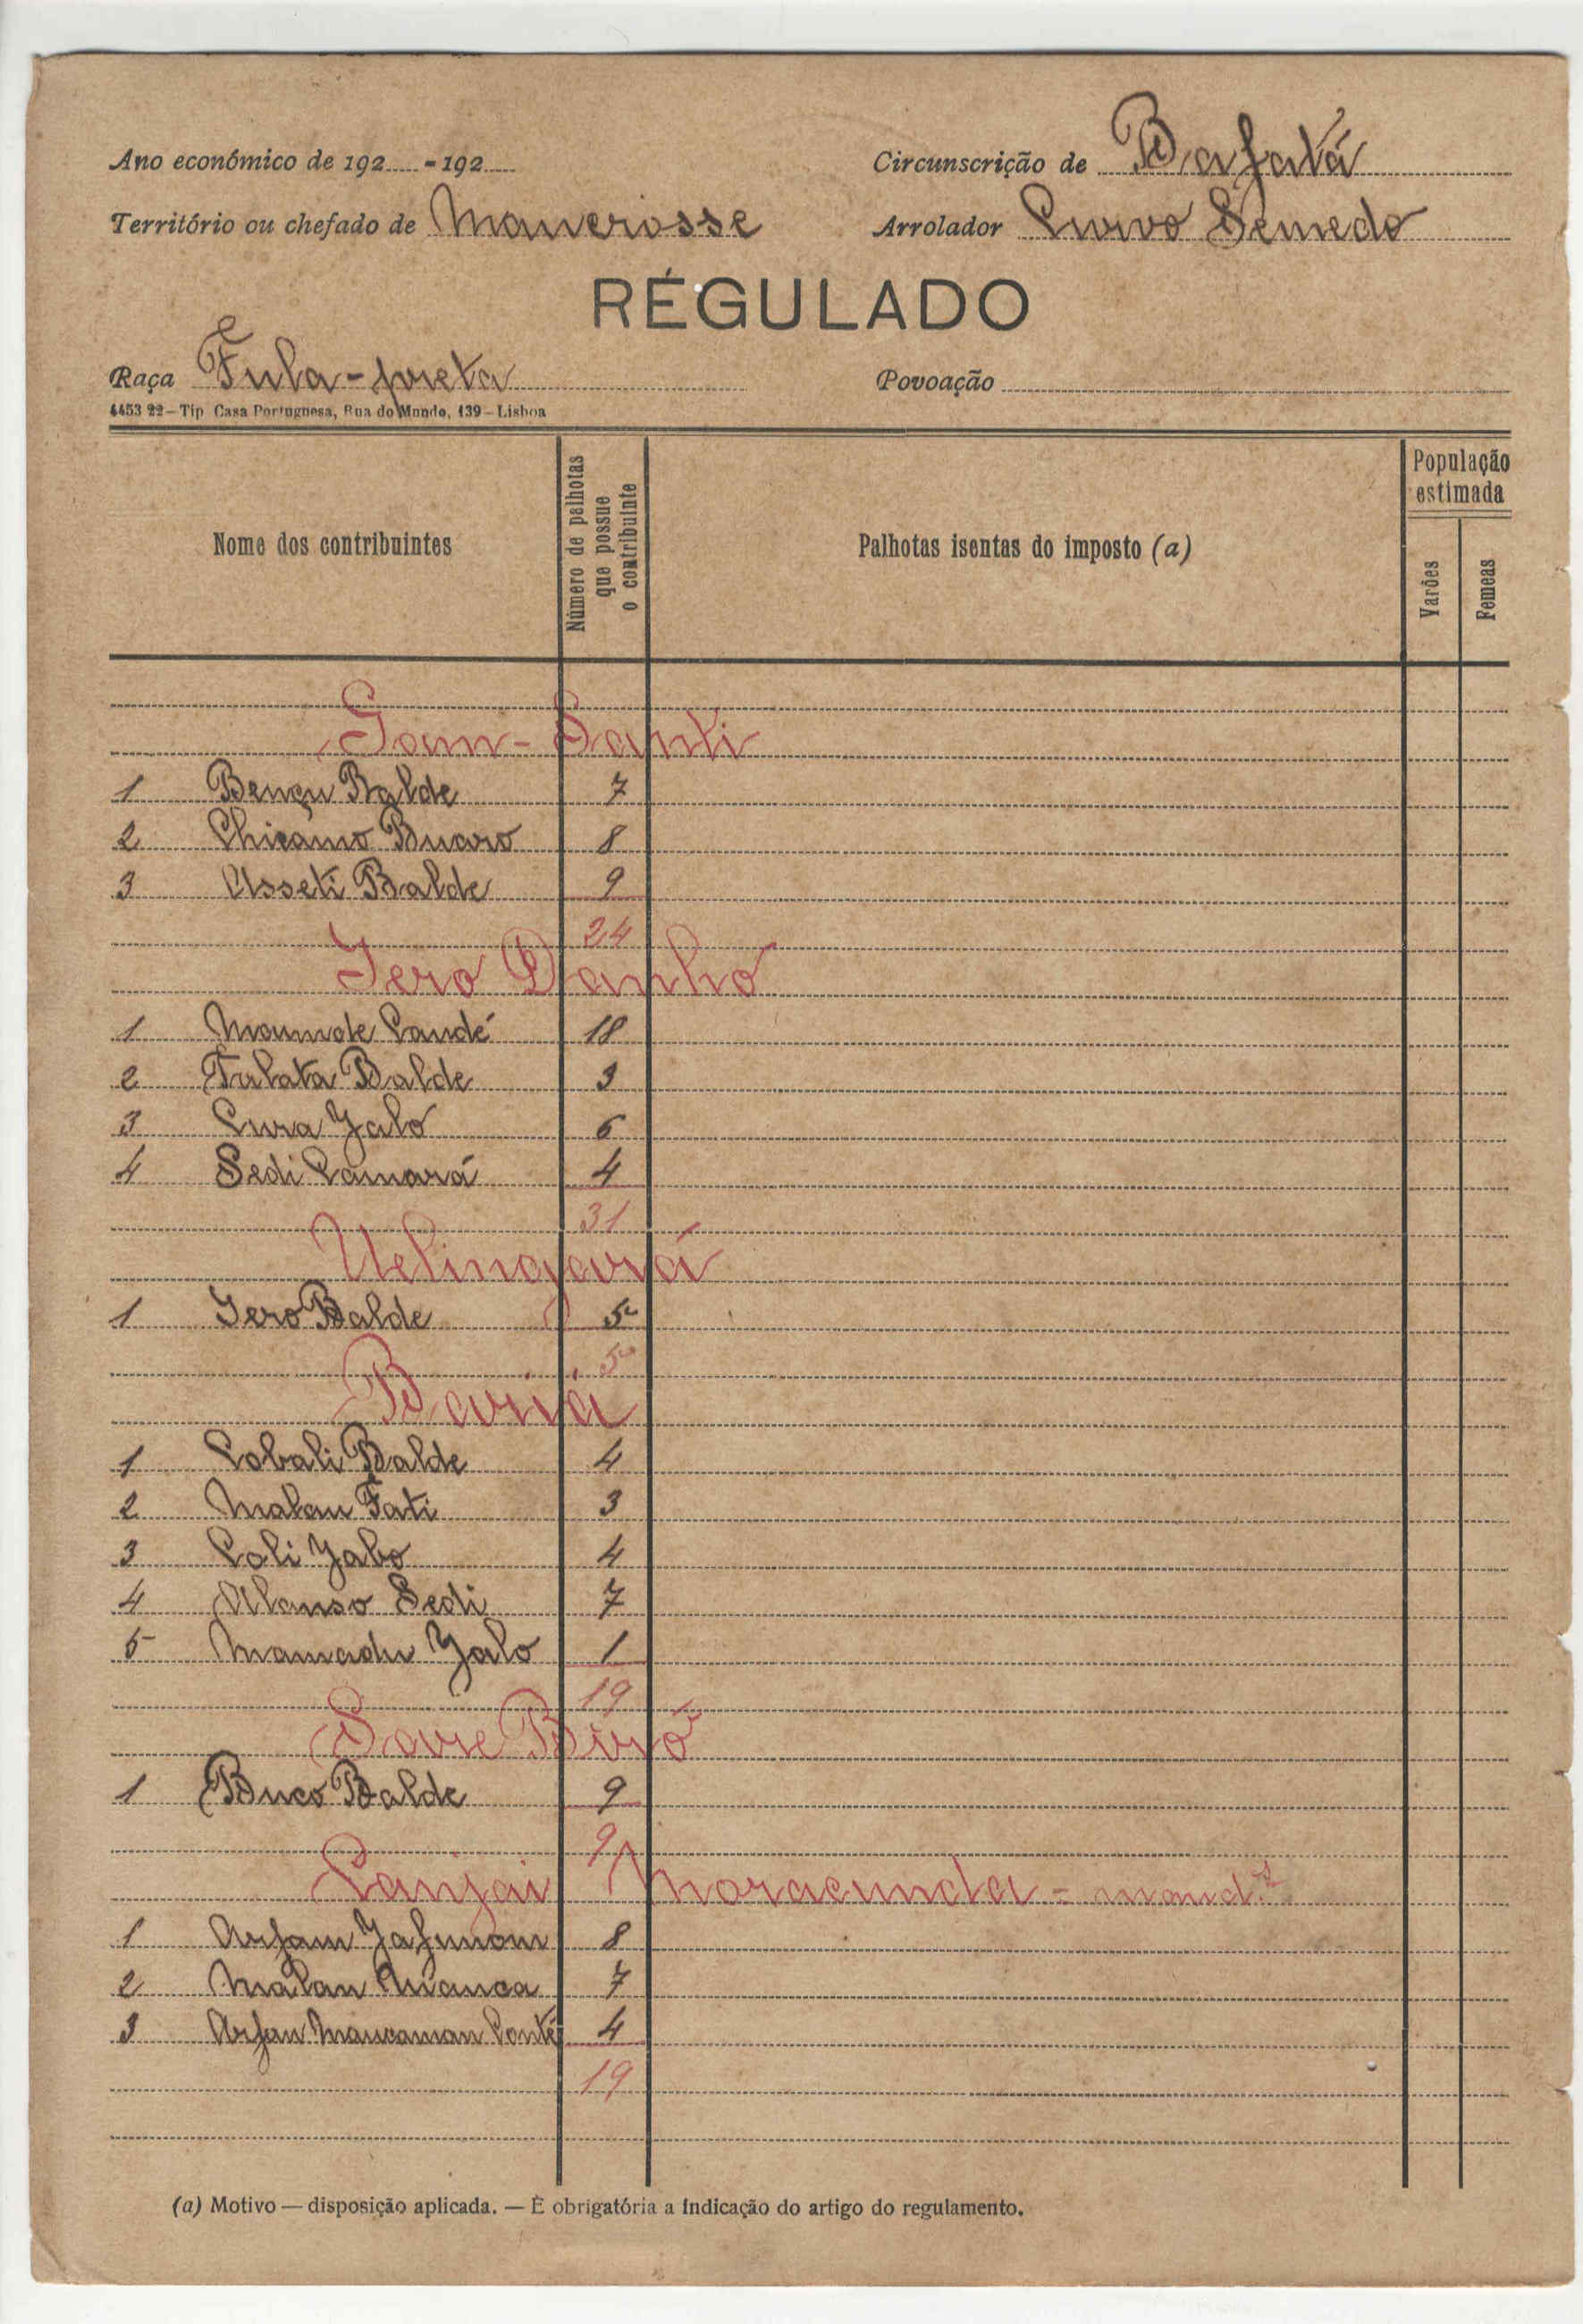 Ano económico de 192.....-192.....
Circunscrição de Bafatá
Território ou chefado de Mancrosse
Arrolador Curvo Semedo
RÉGULADO
Raça Fula-preta
Povoação
4453 22—Tip Casa Portuguesa, Rua do Mundo, 139—Lisboa
Nome dos contribuintes
Número de palhotas que possue o contribuinte
Palhotas isentas do imposto (a)
População estimada
Varões
Femeas
Sam-Santi
1 Bençu Balde 7
2 Balde 8
3 Asseti Balde 9
24
Iero Danhó
1 Mamude Candé 18
2 Fulata Balde 3
3 Cura Jaló 6
4 Sedi Camará 4
31
Uelingará
1 Iero Balde 5
5
1 Cobali Balde 4
2 Malan Fati 3
3 Coli Jalo 4
4 Alanso Sedi 7
5 Mamadu Jalo 1
19
Sare Biró
1 Buco Balde 9
9
Canjai Moracunda - mand.s
1 Arfam Jafunom 8
2 Malan 7
3 Arfan Mancaman Conté 4
19
(a) Motivo — disposição aplicada. — É obrigatória a indicação do artigo do regulamento.